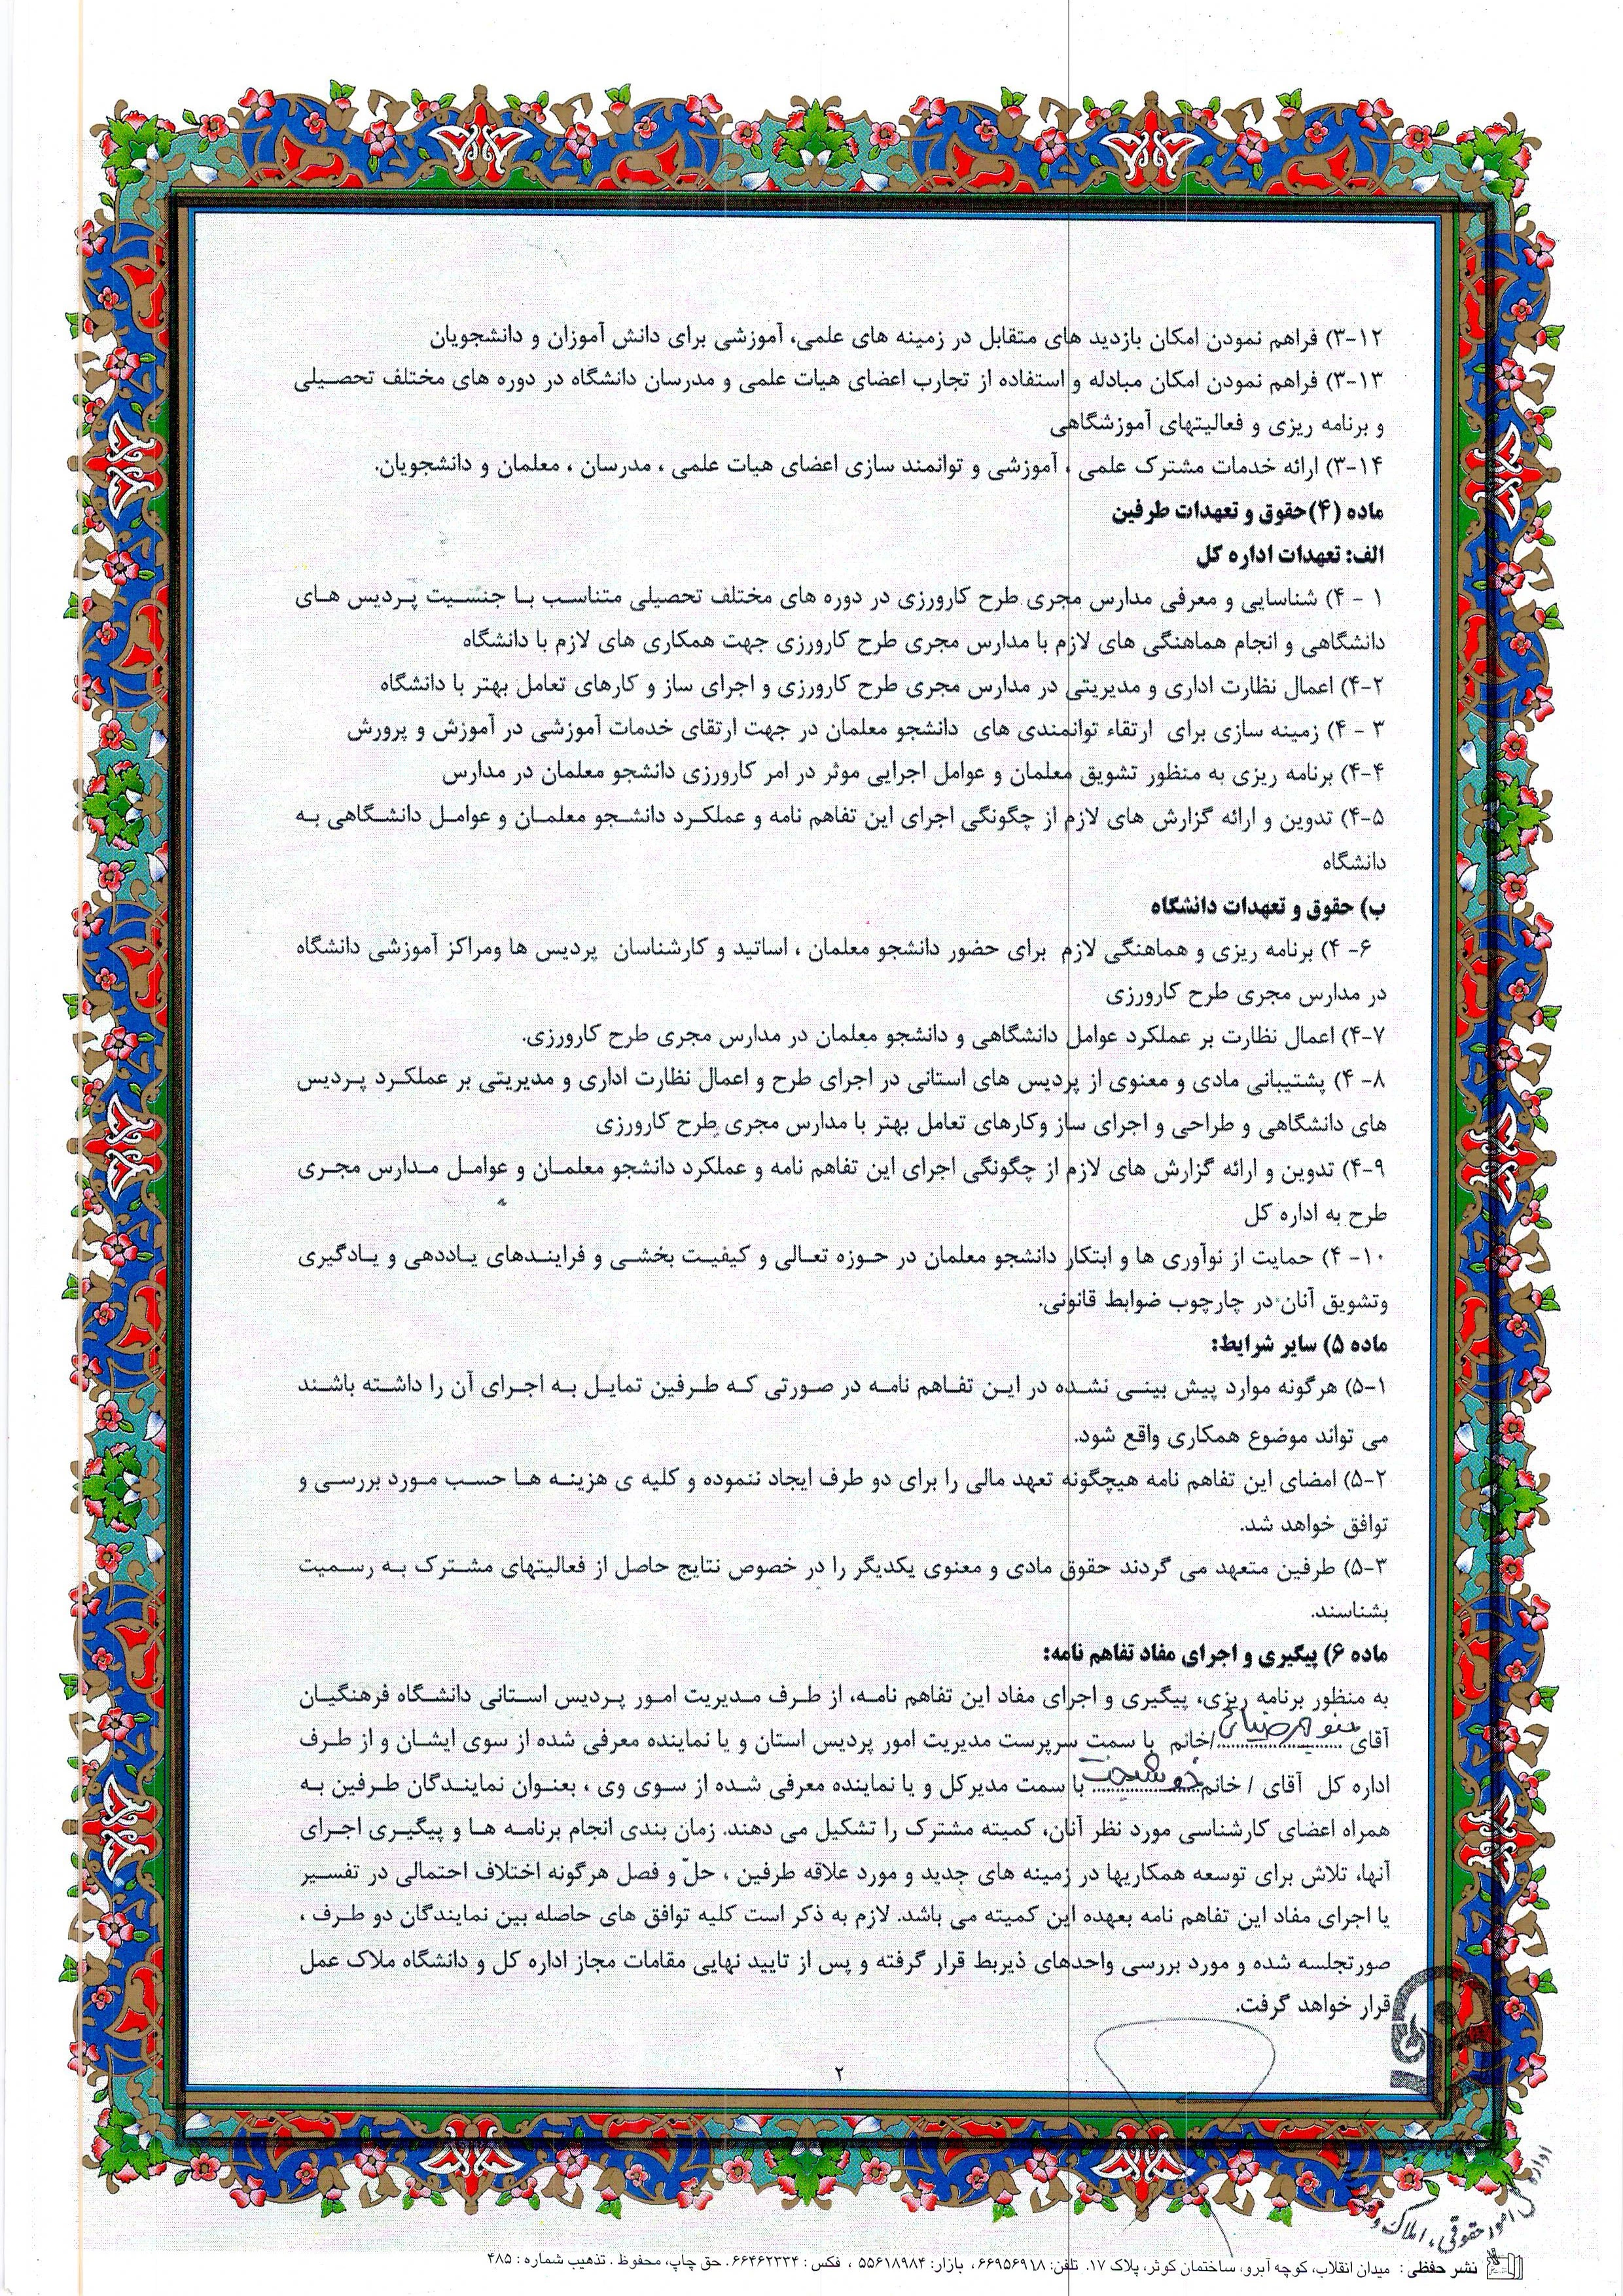 ۳-۱۲) فراهم نمودن امکان بازدید های متقابل در زمینه های علمی، آموزشی برای دانش آموزان و دانشجویان
۳-۱۳) فراهم نمودن امکان مبادله و استفاده از تجارب اعضای هیات علمی و مدرسان دانشگاه در دوره های مختلف تحصیلی
و برنامه ریزی و فعالیتهای آموزشگاهی
۳-۱۴) ارائه خدمات مشترک علمی ، آموزشی و توانمند سازی اعضای هیات علمی ، مدرسان ، معلمان و دانشجویان.
ماده (۴)حقوق و تعهدات طرفین
الف: تعهدات اداره کل
۴ - ۱) شناسایی و معرفی مدارس مجری طرح کارورزی در دوره های مختلف تحصیلی متناسب با جنسیت پردیس های
دانشگاهی و انجام هماهنگی های لازم با مدارس مجری طرح کارورزی جهت همکاری های لازم با دانشگاه
۴-۲) اعمال نظارت اداری و مدیریتی در مدارس مجری طرح کارورزی و اجرای ساز و کارهای تعامل بهتر با دانشگاه
۴ - ۳) زمینه سازی برای ارتقاء توانمندی های دانشجو معلمان در جهت ارتقای خدمات آموزشی در آموزش و پرورش
۴-۴) برنامه ریزی به منظور تشویق معلمان و عوامل اجرایی موثر در امر کارورزی دانشجو معلمان در مدارس
۴-۵) تدوین و ارائه گزارش های لازم از چگونگی اجرای این تفاهم نامه و عملکرد دانشجو معلمان و عوامل دانشگاهی به
دانشگاه
ب) حقوق و تعهدات دانشگاه
۴ -۶) برنامه ریزی و هماهنگی لازم برای حضور دانشجو معلمان ، اساتید و کارشناسان پردیس ها ومراکز آموزشی دانشگاه
در مدارس مجری طرح کارورزی
۴-۷) اعمال نظارت بر عملکرد عوامل دانشگاهی و دانشجو معلمان در مدارس مجری طرح کارورزی.
۴ -۸) پشتیبانی مادی و معنوی از پردیس های استانی در اجرای طرح و اعمال نظارت اداری و مدیریتی بر عملکرد پردیس
های دانشگاهی و طراحی و اجرای ساز وکارهای تعامل بهتر با مدارس مجری طرح کارورزی
۴-۹) تدوین و ارائه گزارش های لازم از چگونگی اجرای این تفاهم نامه و عملکرد دانشجو معلمان و عوامل مدارس مجری
طرح به اداره کل
۴ -۱۰) حمایت از نوآوری ها و ابتکار دانشجو معلمان در حوزه تعالی و کیفیت بخشی و فرایندهای یاددهی و یادگیری
وتشویق آنان در چارچوب ضوابط قانونی.
ماده ۵) سایر شرایط:
۵-۱) هرگونه موارد پیش بینی نشده در این تفاهم نامه در صورتی که طرفین تمایل به اجرای آن را داشته باشند
می تواند موضوع همکاری واقع شود.
۵-۲) امضای این تفاهم نامه هیچگونه تعهد مالی را برای دو طرف ایجاد ننموده و کلیه ی هزینه ها حسب مورد بررسی و
توافق خواهد شد.
۵-۳) طرفین متعهد می گردند حقوق مادی و معنوی یکدیگر را در خصوص نتایج حاصل از فعالیتهای مشترک به رسمیت
بشناسند.
ماده ۶) پیگیری و اجرای مفاد تفاهم نامه:
به منظور برنامه ریزی، پیگیری و اجرای مفاد این تفاهم نامه، از طرف مدیریت امور پردیس استانی دانشگاه فرهنگیان
آقای ............/خانم با سمت سرپرست مدیریت امور پردیس استان و یا نماینده معرفی شده از سوی ایشان و از طرف
اداره کل آقای / خانم............ با سمت مدیرکل و یا نماینده معرفی شده از سوی وی ، بعنوان نمایندگان طرفین به
همراه اعضای کارشناسی مورد نظر آنان، کمیته مشترک را تشکیل می دهند. زمان بندی انجام برنامه ها و پیگیری اجرای
آنها، تلاش برای توسعه همکاریها در زمینه های جدید و مورد علاقه طرفین ، حلّ و فصل هرگونه اختلاف احتمالی در تفسیر
یا اجرای مفاد این تفاهم نامه بعهده این کمیته می باشد. لازم به ذکر است کلیه توافق های حاصله بین نمایندگان دو طرف ،
صورتجلسه شده و مورد بررسی واحدهای ذیربط قرار گرفته و پس از تایید نهایی مقامات مجاز اداره کل و دانشگاه ملاک عمل
قرار خواهد گرفت.
۲
اداره کل امور حقوقی، املاک و
نشر حفظی : میدان انقلاب، کوچه آبرو، ساختمان کوثر، پلاک ۱۷. تلفن: ۶۶۹۵۶۹۱۸، بازار: ۵۵۶۱۸۹۸۴ ، فکس : ۶۶۴۶۲۳۳۴ . حق چاپ، محفوظ . تذهیب شماره : ۴۸۵